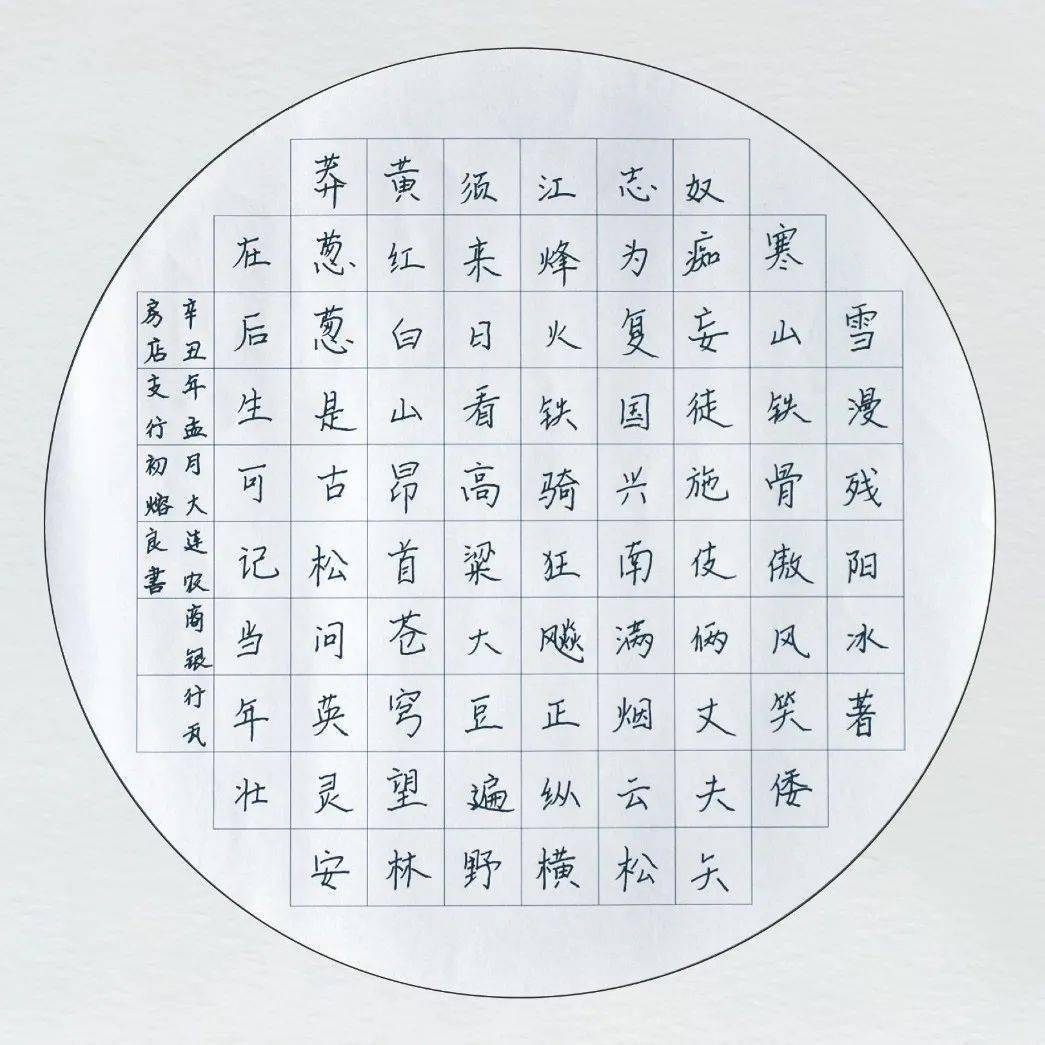 雪漫残阳冰著
寒山铁骨傲风笑倭
奴痴妄徒施伎俩丈夫矢
志为复国兴南满烟云松
江烽火铁骑狂飚正纵横
须来日看高粱大豆遍野
黄红白山昂首苍穹望林
莽葱葱是古松问英灵安
在后生可记当年壮
辛丑年孟月大连农商银行瓦
房店支行初熔良書